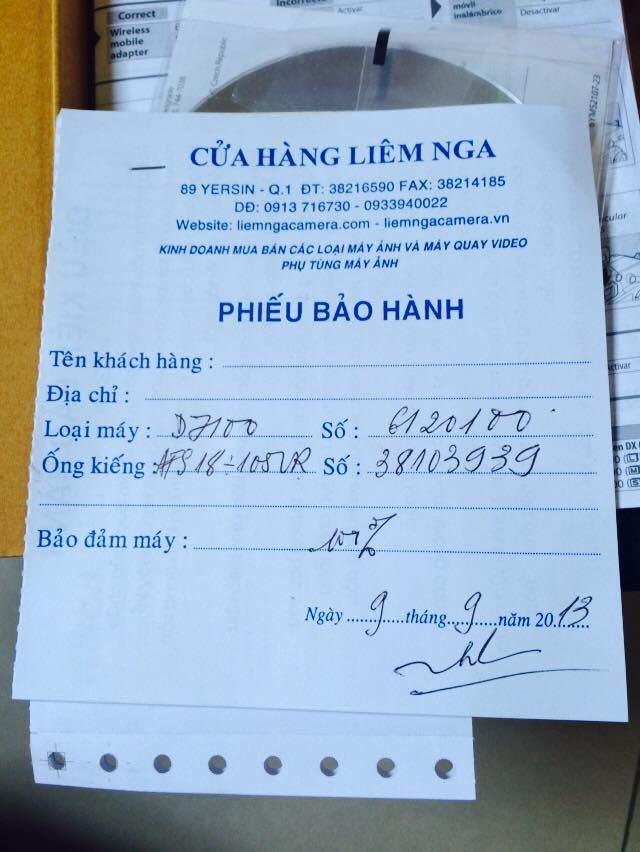 Correct
Wireless
mobile
adapter
Incorrecto
Activar
móvil
inalámbrico
Desactivar
Czech Republic
YMS2107-23
CỬA HÀNG LIÊM NGA
89 YERSIN - Q.1 ĐT: 38216590 FAX: 38214185
DĐ: 0913 716730 - 0933940022
Website: liemngacamera.com - liemngacamera.vn
KINH DOANH MUA BÁN CÁC LOẠI MÁY ẢNH VÀ MÁY QUAY VIDEO
PHỤ TÙNG MÁY ẢNH
PHIẾU BẢO HÀNH
Tên khách hàng :
Địa chỉ :
Loại máy : D7100 Số : 6120100
Ống kiếng : AFS 18-105VR Số : 38103939
Bảo đảm máy :
Ngày 9 tháng 9 năm 2013